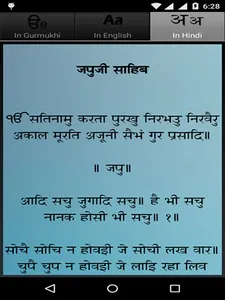 6:28
ੳੲ
Aa
अ अ
In Gurmukhi
In English
In Hindi
जपुजी साहिब
ੴ सतिनामु करता पुरखु निरभउ निरवैरु
अकाल मूरति अजूनी सैभं गुर प्रसादि॥
॥ जपु॥
आदि सचु जुगादि सचु॥ है भी सचु
नानक होसी भी सचु॥ १॥
सोचै सोचि न होवई जे सोची लख वार॥
चुपै चुप न होवई जे लाइ रहा लिव